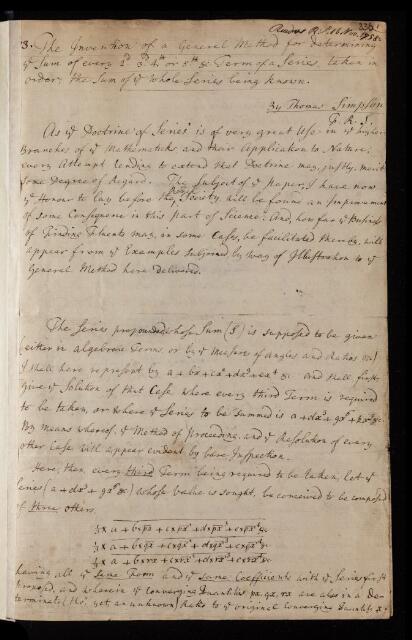 Read at R.S. 16. Nov. 1758.
3. The Invention of a General Method for determining
ye Sum of every 2d. 3d. 4th. or 5th. &c Term of a Series, taken in
order; the Sum of ye whole Series being known.
By Thomas Simpson
F. R. S.
As ye Doctrine of Series is of very great Use in ye higher
Branches of ye Mathematicks and their Application to Nature;
every Attempt tending to extend that Doctrine may, justly, merit
some Degree of Regard. The Subject of ye Paper, I have now
ye Honour to lay before the Royal Society, will be found an Improvement
of some Consequence in this Part of Science. And, how far ye Business
of Finding Fluents may, in some Cases, be facilitated thereby, will
appear from ye Examples subjoined by way of Illustration to ye
General Method here Delivered.
The Series propounded, whose Sum (S) is supposed to be given
(either in algebraic Terms, or by ye Measures of Angles and Ratios &c)
I shall here represent by a + bx + cx² + dx³ + ex⁴ &c. And shall first
give ye Solution of that Case where every third Term is required
to be taken, or where ye Series to be summed is a + dx³ + gx⁶ + kx⁹ &c.
By means whereof, ye Method of proceeding, and ye Resolution of every
other Case will appear evident by bare Inspection.
Here, then, every third Term being required to be taken, let ye
Series (a + dx³ + gx⁶ &c) whose Value is sought, be conceived to be composed
of three others.
⅓ x a + bxpx + cxpx² + dxpx³ + expx⁴ &c
⅓ x a + bxqx + cxqx² + dxqx³ + exqx⁴ &c
⅓ x a + bxrx + cxrx² + dxrx³ + exrx⁴ &c
having all ye same Form and ye same Coefficients with ye Series first
proposed, and wherein ye converging Quantities px, qx, rx are also in a De-
terminate (tho' yet an unknown) Ratio to ye original converging Quantity x.